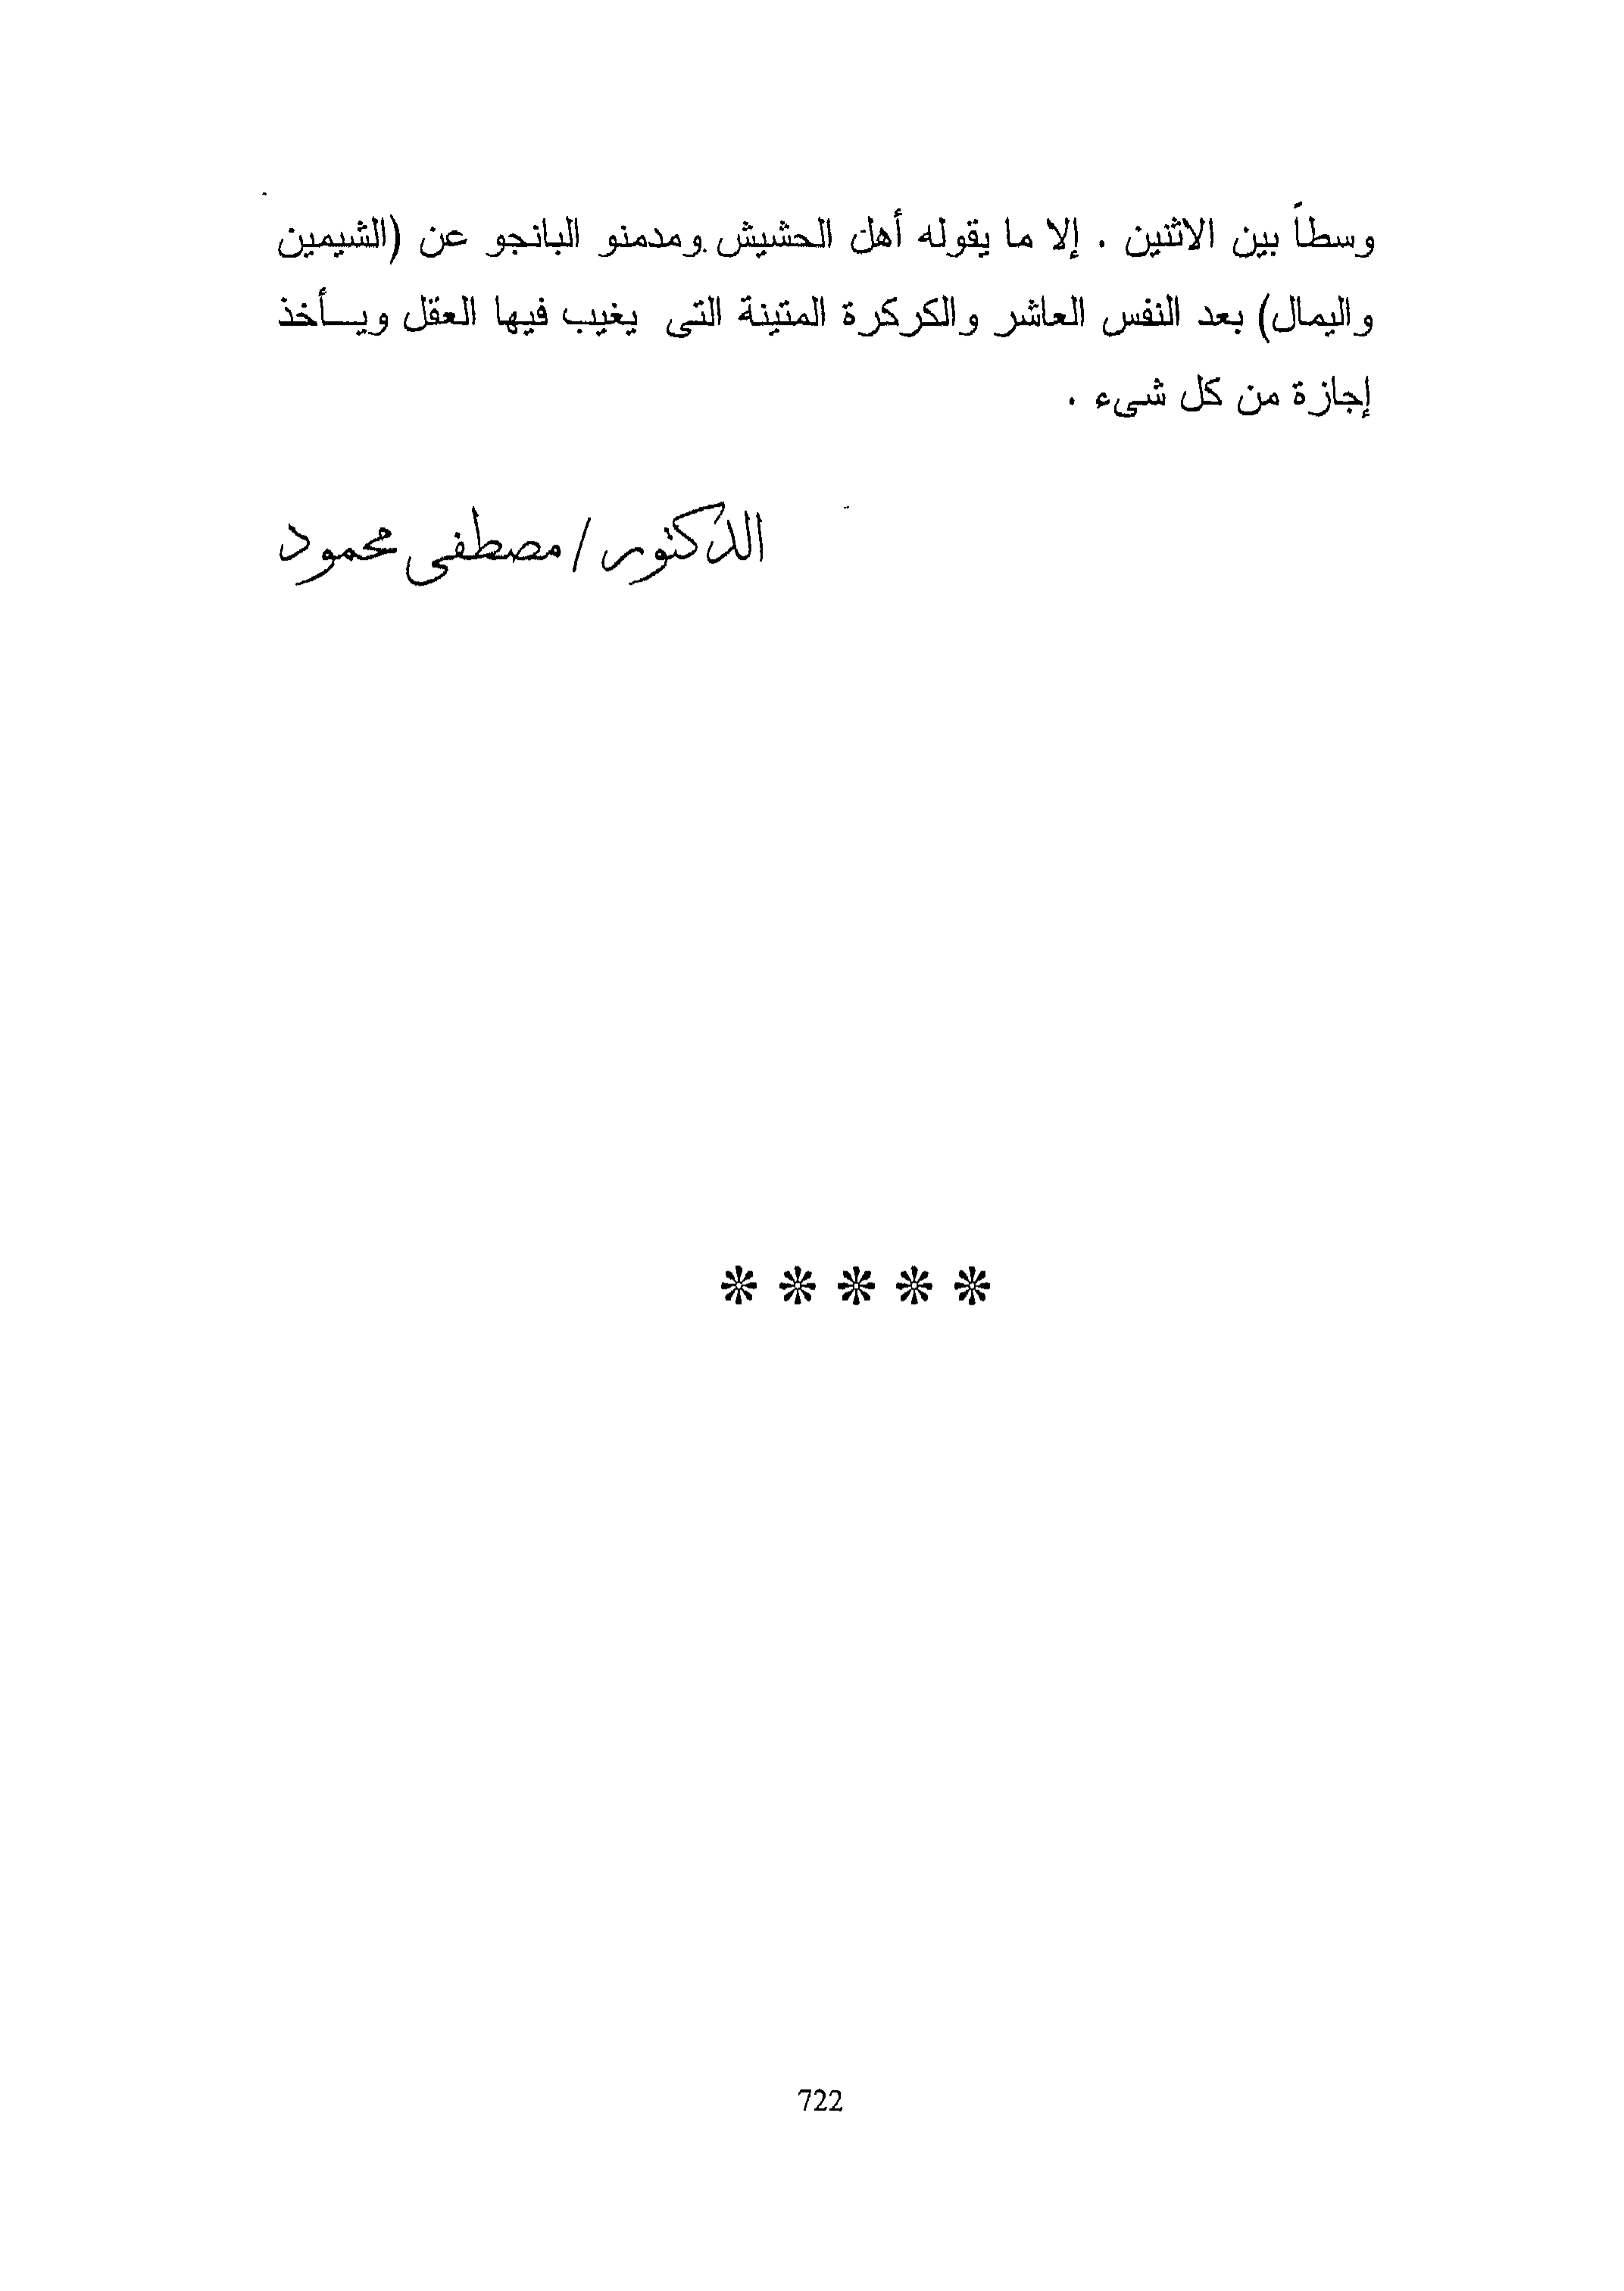 وسطاً بين الاثنين . إلا ما يقوله أهل الحشيش ومدمنو البانجو عن (الشيمين
واليمال) بعد النفس العاشر والكركرة المتينة التى يغيب فيها العقل ويـــأخذ
إجازة من كل شىء .
الدكتور / مصطفى محمود
* * * * *
722